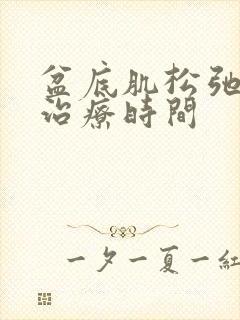 盆底肌松弛
治療時間
一夕一夏一紅